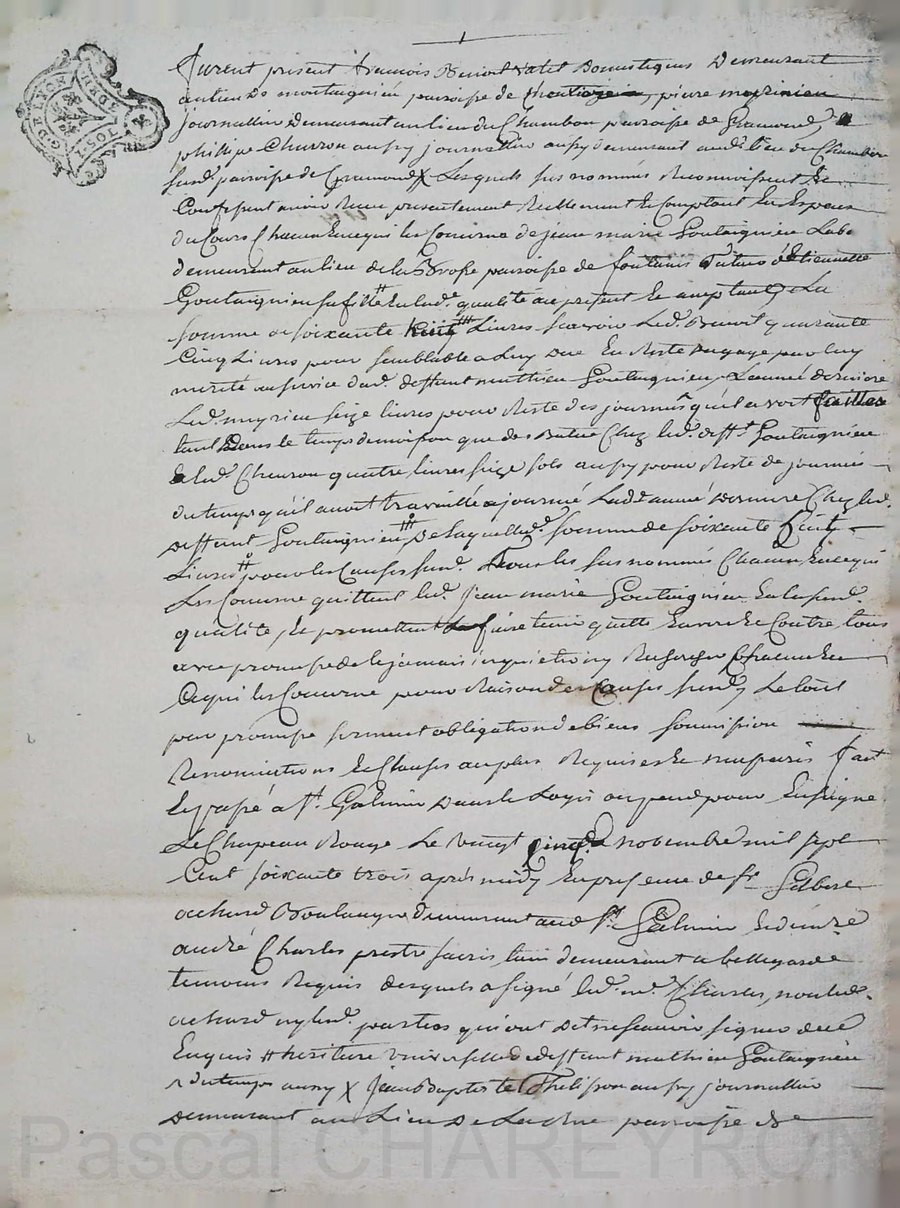 Furent present francois Benoit valet Domestiques Demeurant
au lieu de montaignieu paroisse de pierre meyrinieu
journallier Demeurant au lieu du Chambon paroisse de Gramond,
philippe Charron aussy journallier aussy demeurant aud. lieu du Chambon
susd. paroisse de Gramond X Lesquels sus nommés Reconnoissent Et
Confessent avoir Receu presentement Reellement Et Comptant En Especes
du Cours Chacun En ce qui les Concerne de jean marie Goutaignieu Lab.
demeurant au lieu de la paroisse de fontanis d'Etiennette
Goutaignieu sa fille En lad. qualité au present Et acceptant La
somme de soixante Livres scavoir Led. Benoit quarante
Cinq Livres pour semblable a Luy Due En Reste de gage par luy
merité au service dud. deffunt mathieu Goutaignieu L'année derniere
Led. meyrieu seize livres pour Reste des journées qu'il avoit faittes
tant Dans le temps de moisson que des Batue Chez led. defft. Goutaignieu
Et led. Charron quatre livres seize sols aussy pour Reste de journées
du temps qu'il avoit travaillé a journée Lad. année Derniere Chez led.
Deffunt Goutaignieu De laquelle d. somme de soixante
Livres pour les Causes susd. Tous les sus nommés Chacun En ce qui
Les Concerne quittent led. jean marie Goutaignieu En la susd.
qualité Et promettent faire tenir quitte Envers Et Contre tous
avec promesse de le jamais inquietter ny Rechercher Chacun En
Ce qui les Concerne pour Raison des Causes susd. Le tout
par promesse serment obligation de biens soumission
Renonciations Et Clauses au plus Requises Et necessaires fait
Et passé a St. Galmier Dans le Logis ou pend pour Enseigne
Le Chapeau Rouge Le vingt Cinq novembre mil sept
Cent soixante trois après midy En presence de Sr.
achard Boulanger Demeurant aud St. Galmier Et de mre.
andré Charles prestre sacristain demeurant a bellegarde
temoins Requis Desquels a signé led. mr. Charles, non led.
achard ny lesd. parties qui ont Dit ne scavoir signer de ce
Enquis # heritiere universelle de deffunt mathieu Goutaignieu
X jean Baptiste Thelisson aussy journallier
Demeurant au Lieu De paroisse de
G. DE LYON
Pascal CHAREYRON